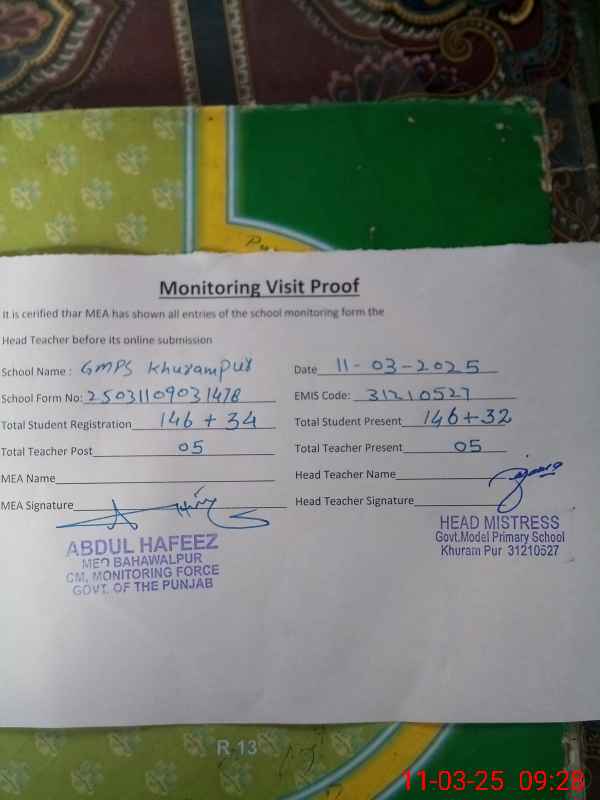 Monitoring Visit Proof
It is cerified thar MEA has shown all entries of the school monitoring form the
Head Teacher before its online submission
School Name : GMPS Khurampur Date 11-03-2025
School Form No: 25031109031478 EMIS Code: 31210527
Total Student Registration 146 + 34 Total Student Present 146+32
Total Teacher Post 05 Total Teacher Present 05
MEA Name Head Teacher Name
MEA Signature Head Teacher Signature
ABDUL HAFEEZ
MEO BAHAWALPUR
CM, MONITORING FORCE
GOVT. OF THE PUNJAB
HEAD MISTRESS
Govt.Model Primary School
Khuram Pur 31210527
R 13
11-03-25 09:28